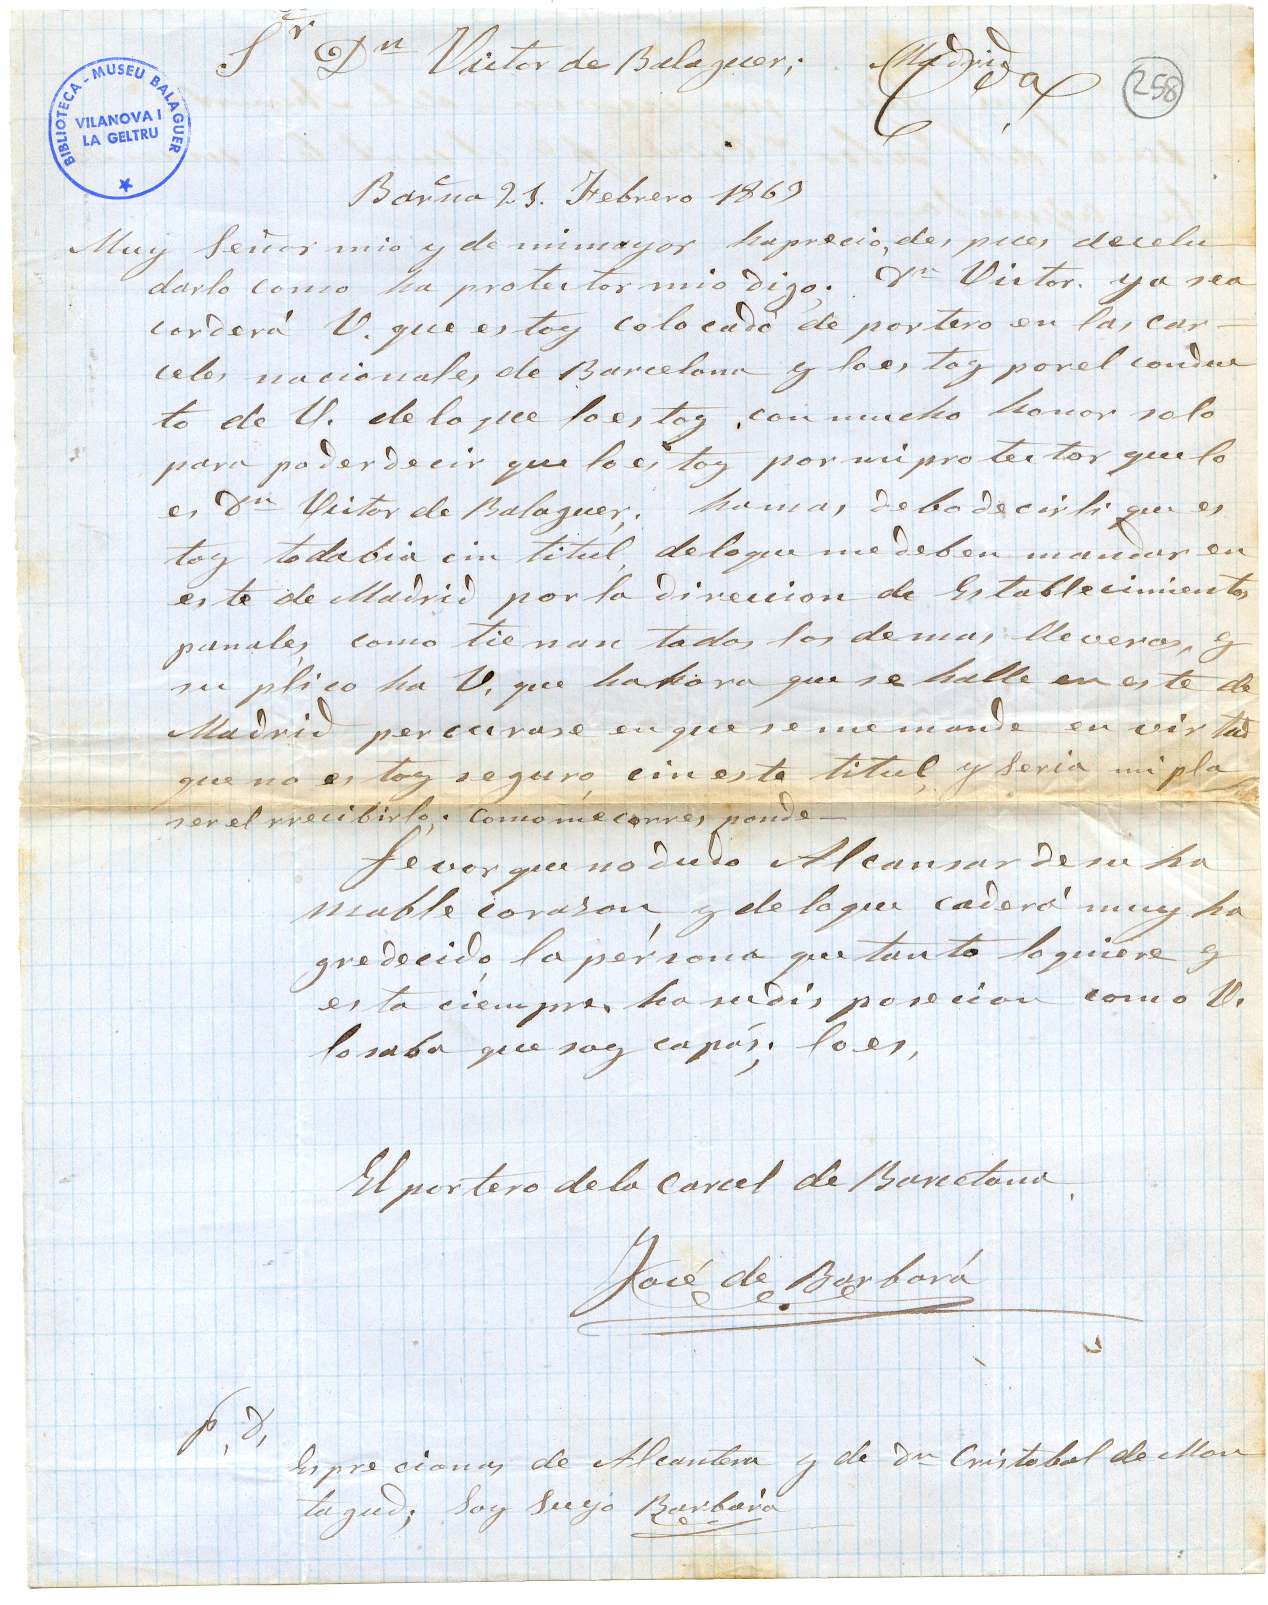 Sr Dn Victor de Balaguer; Madrid
258
BIBLIOTECA - MUSEU BALAGUER
VILANOVA I
LA GELTRU
Barna 23. Febrero 1869
Muy Señor mio y de mimayor haprecio, des pues decelu
darlo como ha protector mio digo; Dn Victor. ya sea
corderá V. que estoy colocado de portero en las car-
celes nacionales, de Barcelona y loes toy porel conduc
to de V. delo que loestoy, con mucho honor solo
para poderdecir que loestoy por miprotector quelo
es Dn Victor de Balaguer; hamas debodecirli que es
toy todabia cin titul, deloque medeben mandar en
este de Madrid por la direccion de Establecimientos
panales, como tienan todos los demas lleveros, y
su plico ha V. que hahora que se halle en este de
Madrid percurase enque se memande en virtud
que no estoy seguro, cin este titul, y seria mi pla
ser el rrecibirlo; como me corres ponde-
Fevor que nodudo Alcansar de su ha
mable corason y deloque caderá muy ha
gredecido, la persona que tanto loquiere y
esta ciempre, ha sudis posecion como V.
losaba que soy capás; loes,
El portero dela Carcel de Barcelona,
José de Barbará
p, d,
Espre cionas de Alcantera y de dn Cristobal de Mon
tagud; Soy Suyo Barbára